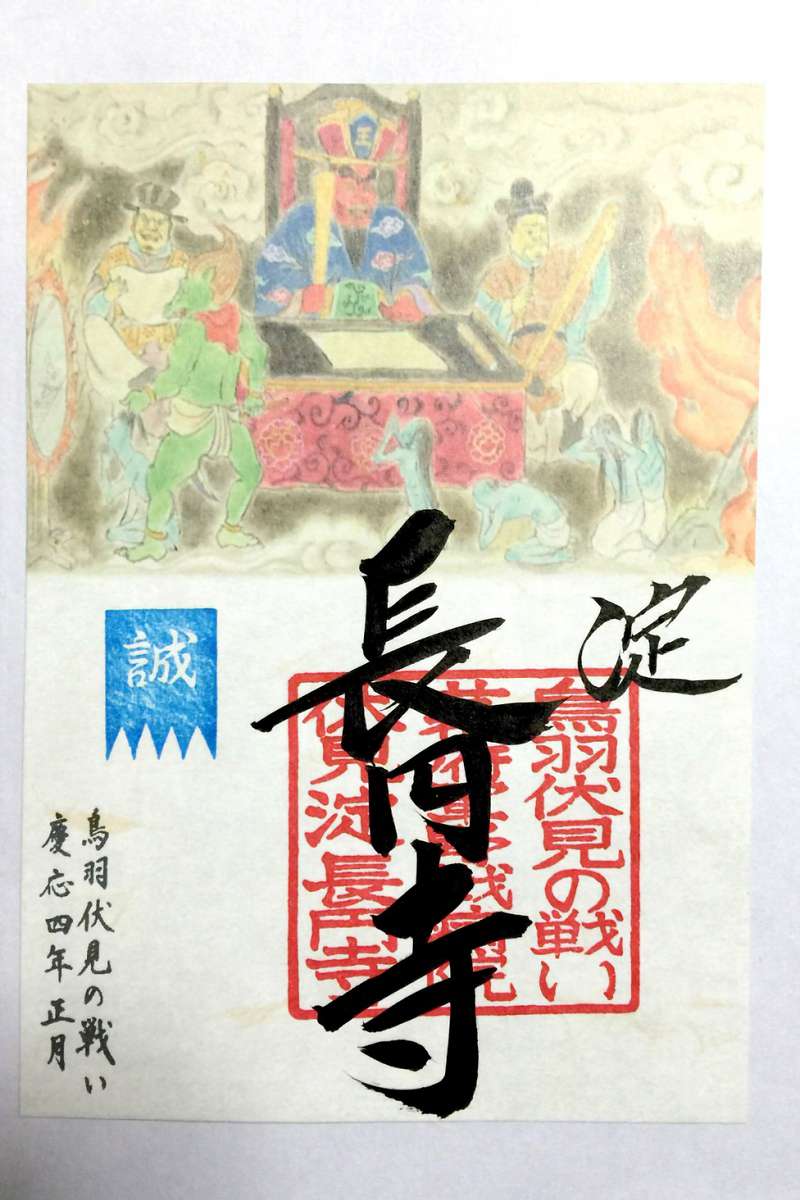 淀
長円寺
誠
鳥羽伏見の戦い
伏見淀長円寺
鳥羽伏見の戦い
慶応四年正月